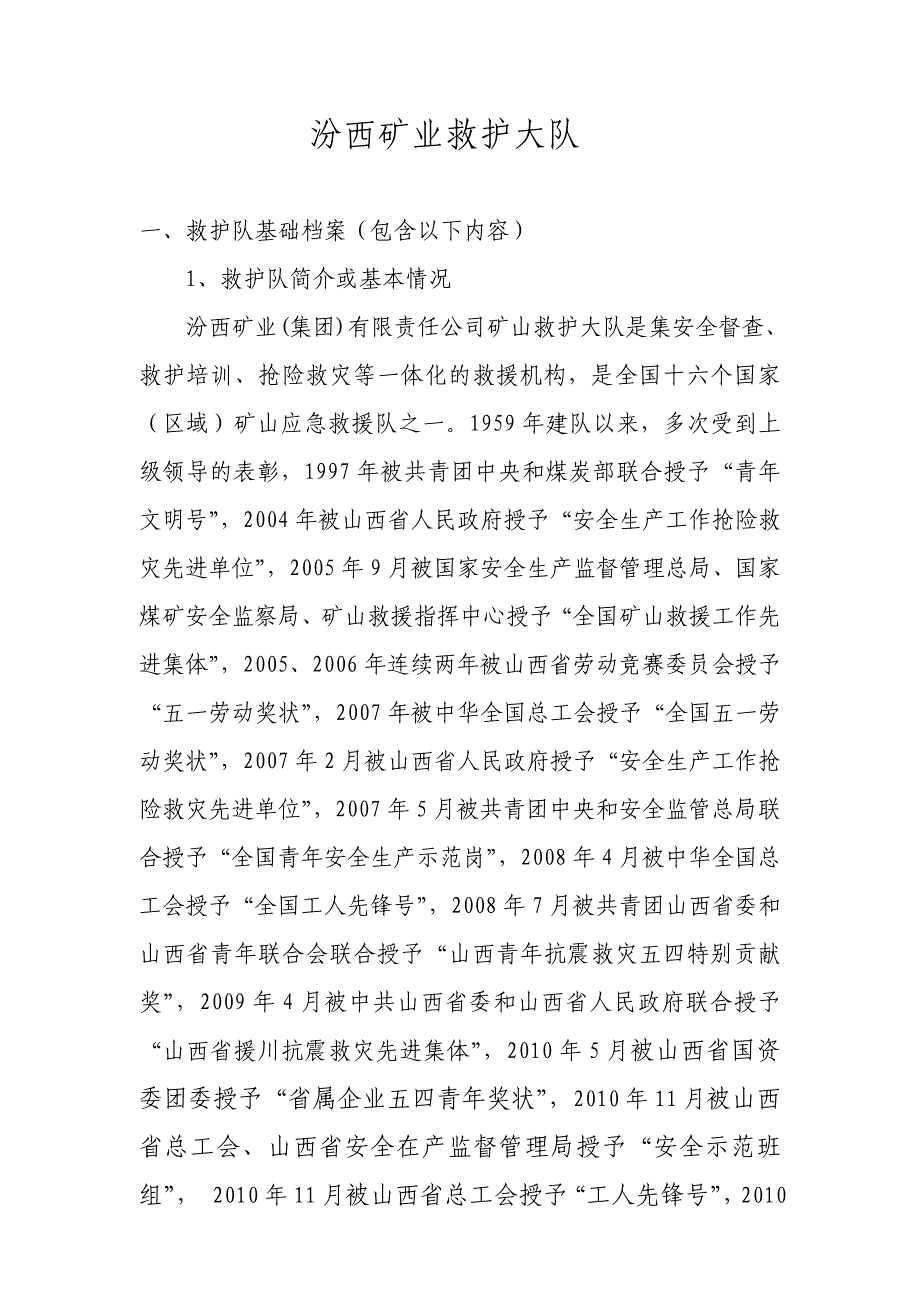 汾西矿业救护大队
一、救护队基础档案（包含以下内容）
1、救护队简介或基本情况
汾西矿业(集团)有限责任公司矿山救护大队是集安全督查、
救护培训、抢险救灾等一体化的救援机构，是全国十六个国家
（区域）矿山应急救援队之一。1959 年建队以来，多次受到上
级领导的表彰，1997 年被共青团中央和煤炭部联合授予“青年
文明号”，2004 年被山西省人民政府授予“安全生产工作抢险救
灾先进单位”，2005 年 9 月被国家安全生产监督管理总局、国家
煤矿安全监察局、矿山救援指挥中心授予“全国矿山救援工作先
进集体”，2005、2006 年连续两年被山西省劳动竞赛委员会授予
“五一劳动奖状”，2007 年被中华全国总工会授予“全国五一劳
动奖状”，2007 年 2 月被山西省人民政府授予“安全生产工作抢
险救灾先进单位”，2007 年 5 月被共青团中央和安全监管总局联
合授予“全国青年安全生产示范岗”，2008 年 4 月被中华全国总
工会授予“全国工人先锋号”，2008 年 7 月被共青团山西省委和
山西省青年联合会联合授予“山西青年抗震救灾五四特别贡献
奖”，2009 年 4 月被中共山西省委和山西省人民政府联合授予
“山西省援川抗震救灾先进集体”，2010 年 5 月被山西省国资
委团委授予“省属企业五四青年奖状”，2010 年 11 月被山西
省总工会、山西省安全在产监督管理局授予“安全示范班
组”， 2010 年 11 月被山西省总工会授予“工人先锋号”，2010